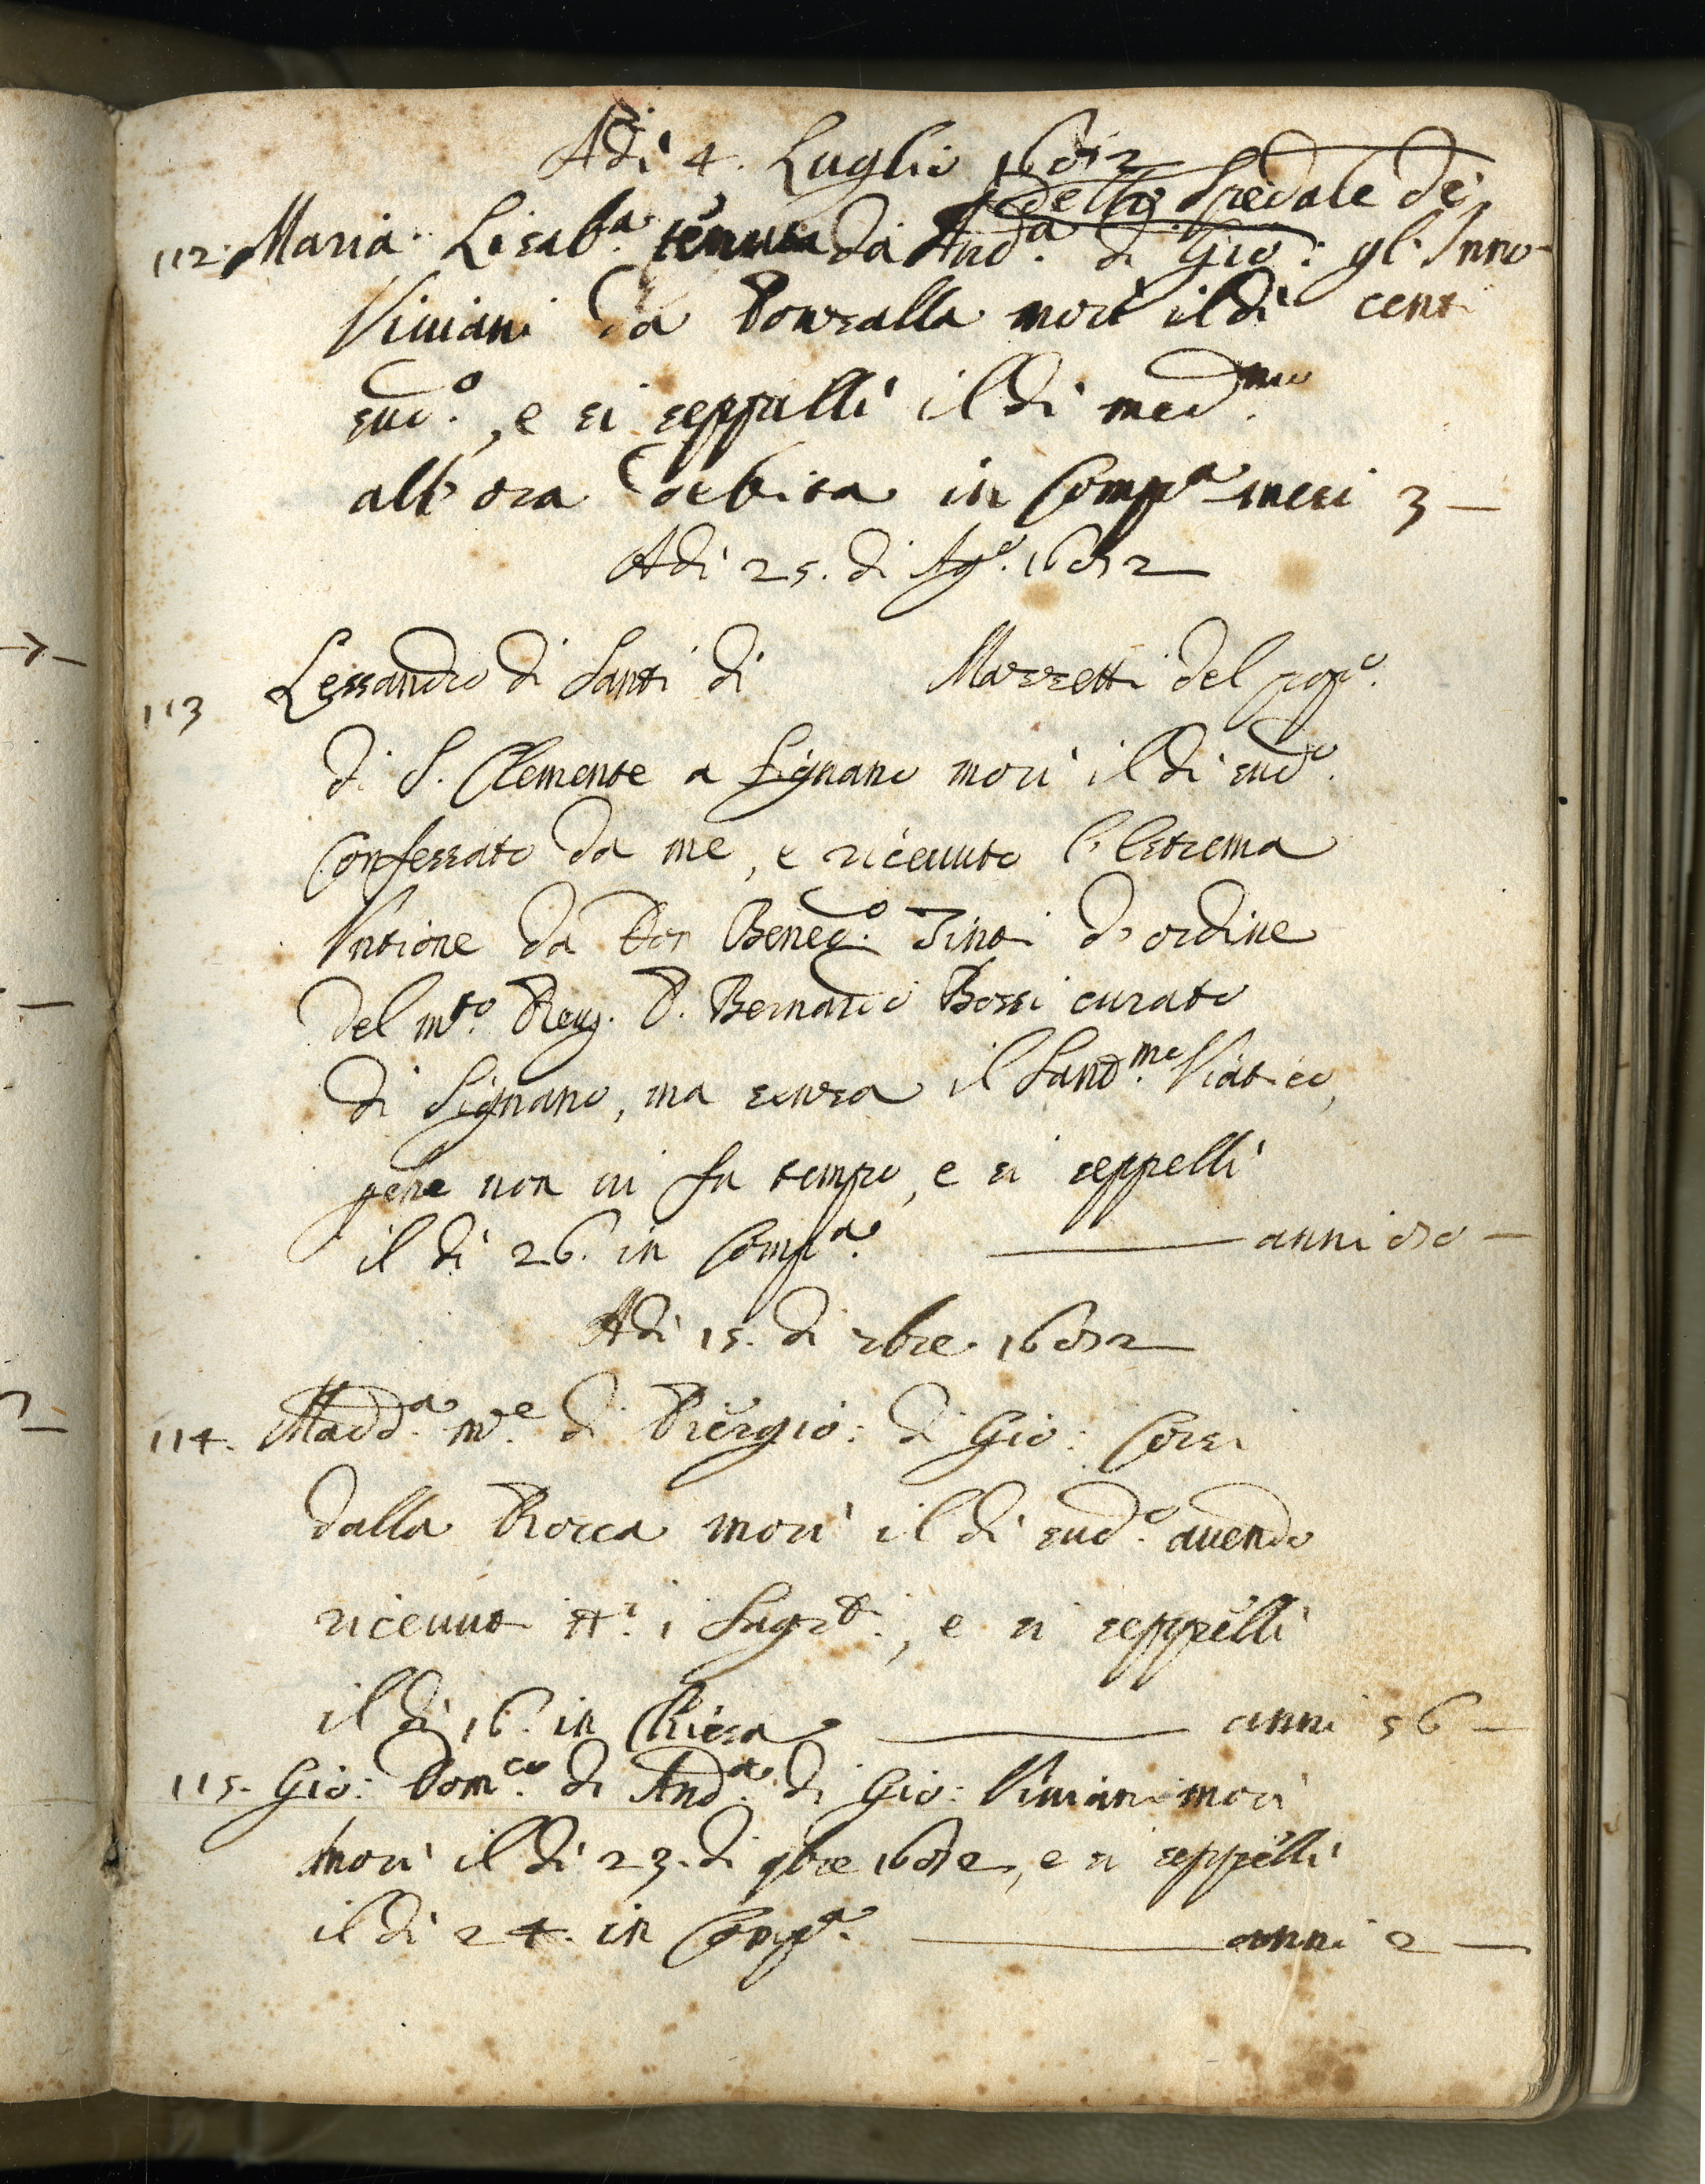 Adi 4. Luglio 1652
dello Spedale de
112. Maria Lisab.a tenuta da And.a di Gio: gl'Inno-
Viviani da Ponzalla morì il dì centi
sud.o, e si seppellì il dì med.mo
all'ora debita in Comp.a mesi 3 —
Adi 25. di Ag.o 1652
113 Lessandro di Santi di Mazzetti del pop.o
di S. Clemente a Signano morì il dì sud.o
confessato da me, e ricevuto l'Estrema
Untione da Don Bened.o Tinti d'ordine
del m.to Reu. P. Bernardo Bossi curato
di Signano, ma senza il Sant.mo Viatico,
pche non ui fu tempo, e si seppellì
il dì 26. in Comp.a — anni 50 —
Adi 15. di 7bre 1652
114. Madd.a m.e di Piergio: di Gio: Corsi
dalla Rocca morì il dì sud.o avendo
riceuuti tt.i i Sagr.ti, e si seppellì
il dì 16. in Chiesa — anni 56 —
115. Gio: Dom.co di And.a di Gio: Viviani morì
morì il dì 23. di 9bre 1652, e si seppellì
il dì 24. in Comp.a — anni 2 —